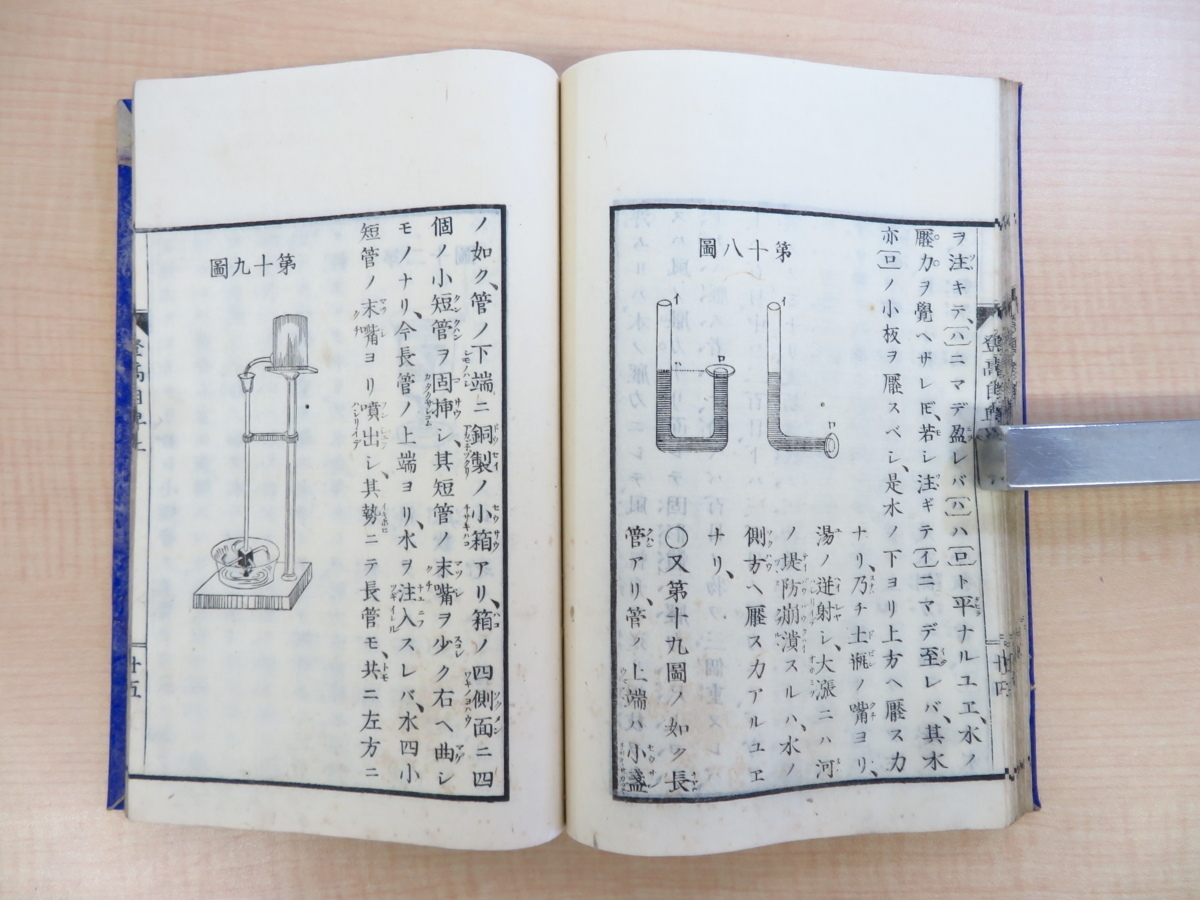 ヲ注キテ、(ハ)ニマデ盈レバ(ハ)ハ(ロ)ト平ナルユヱ、水ノ
壓力ヲ覺ヘザレ𪜈、若シ注ギテ(イ)ニマデ至レバ、其水
亦(ロ)ノ小板ヲ壓スベシ、是水ノ下ヨリ上方ヘ壓ス力
第十八圖
イ
イ
ロ
ハ
ロ
ナリ、乃チ土瓶ノ嘴ヨリ、
湯ノ迸射シ、大漲ニハ河
ノ堤防崩潰スルハ、水ノ
側方ヘ壓ス力アルユヱ
ナリ、
〇又第十九圖ノ如ク長
管アリ、管ノ上端ハ小盞
廿四
ノ如ク、管ノ下端ニ銅製ノ小箱アリ、箱ノ四側面ニ四
個ノ小短管ヲ固挿シ、其短管ノ末嘴ヲ少ク右ヘ曲シ
モノナリ、今長管ノ上端ヨリ、水ヲ注入スレバ、水四小
短管ノ末嘴ヨリ噴出シ、其勢ニテ長管モ、共ニ左方ニ
第十九圖
登高自卑
廿五